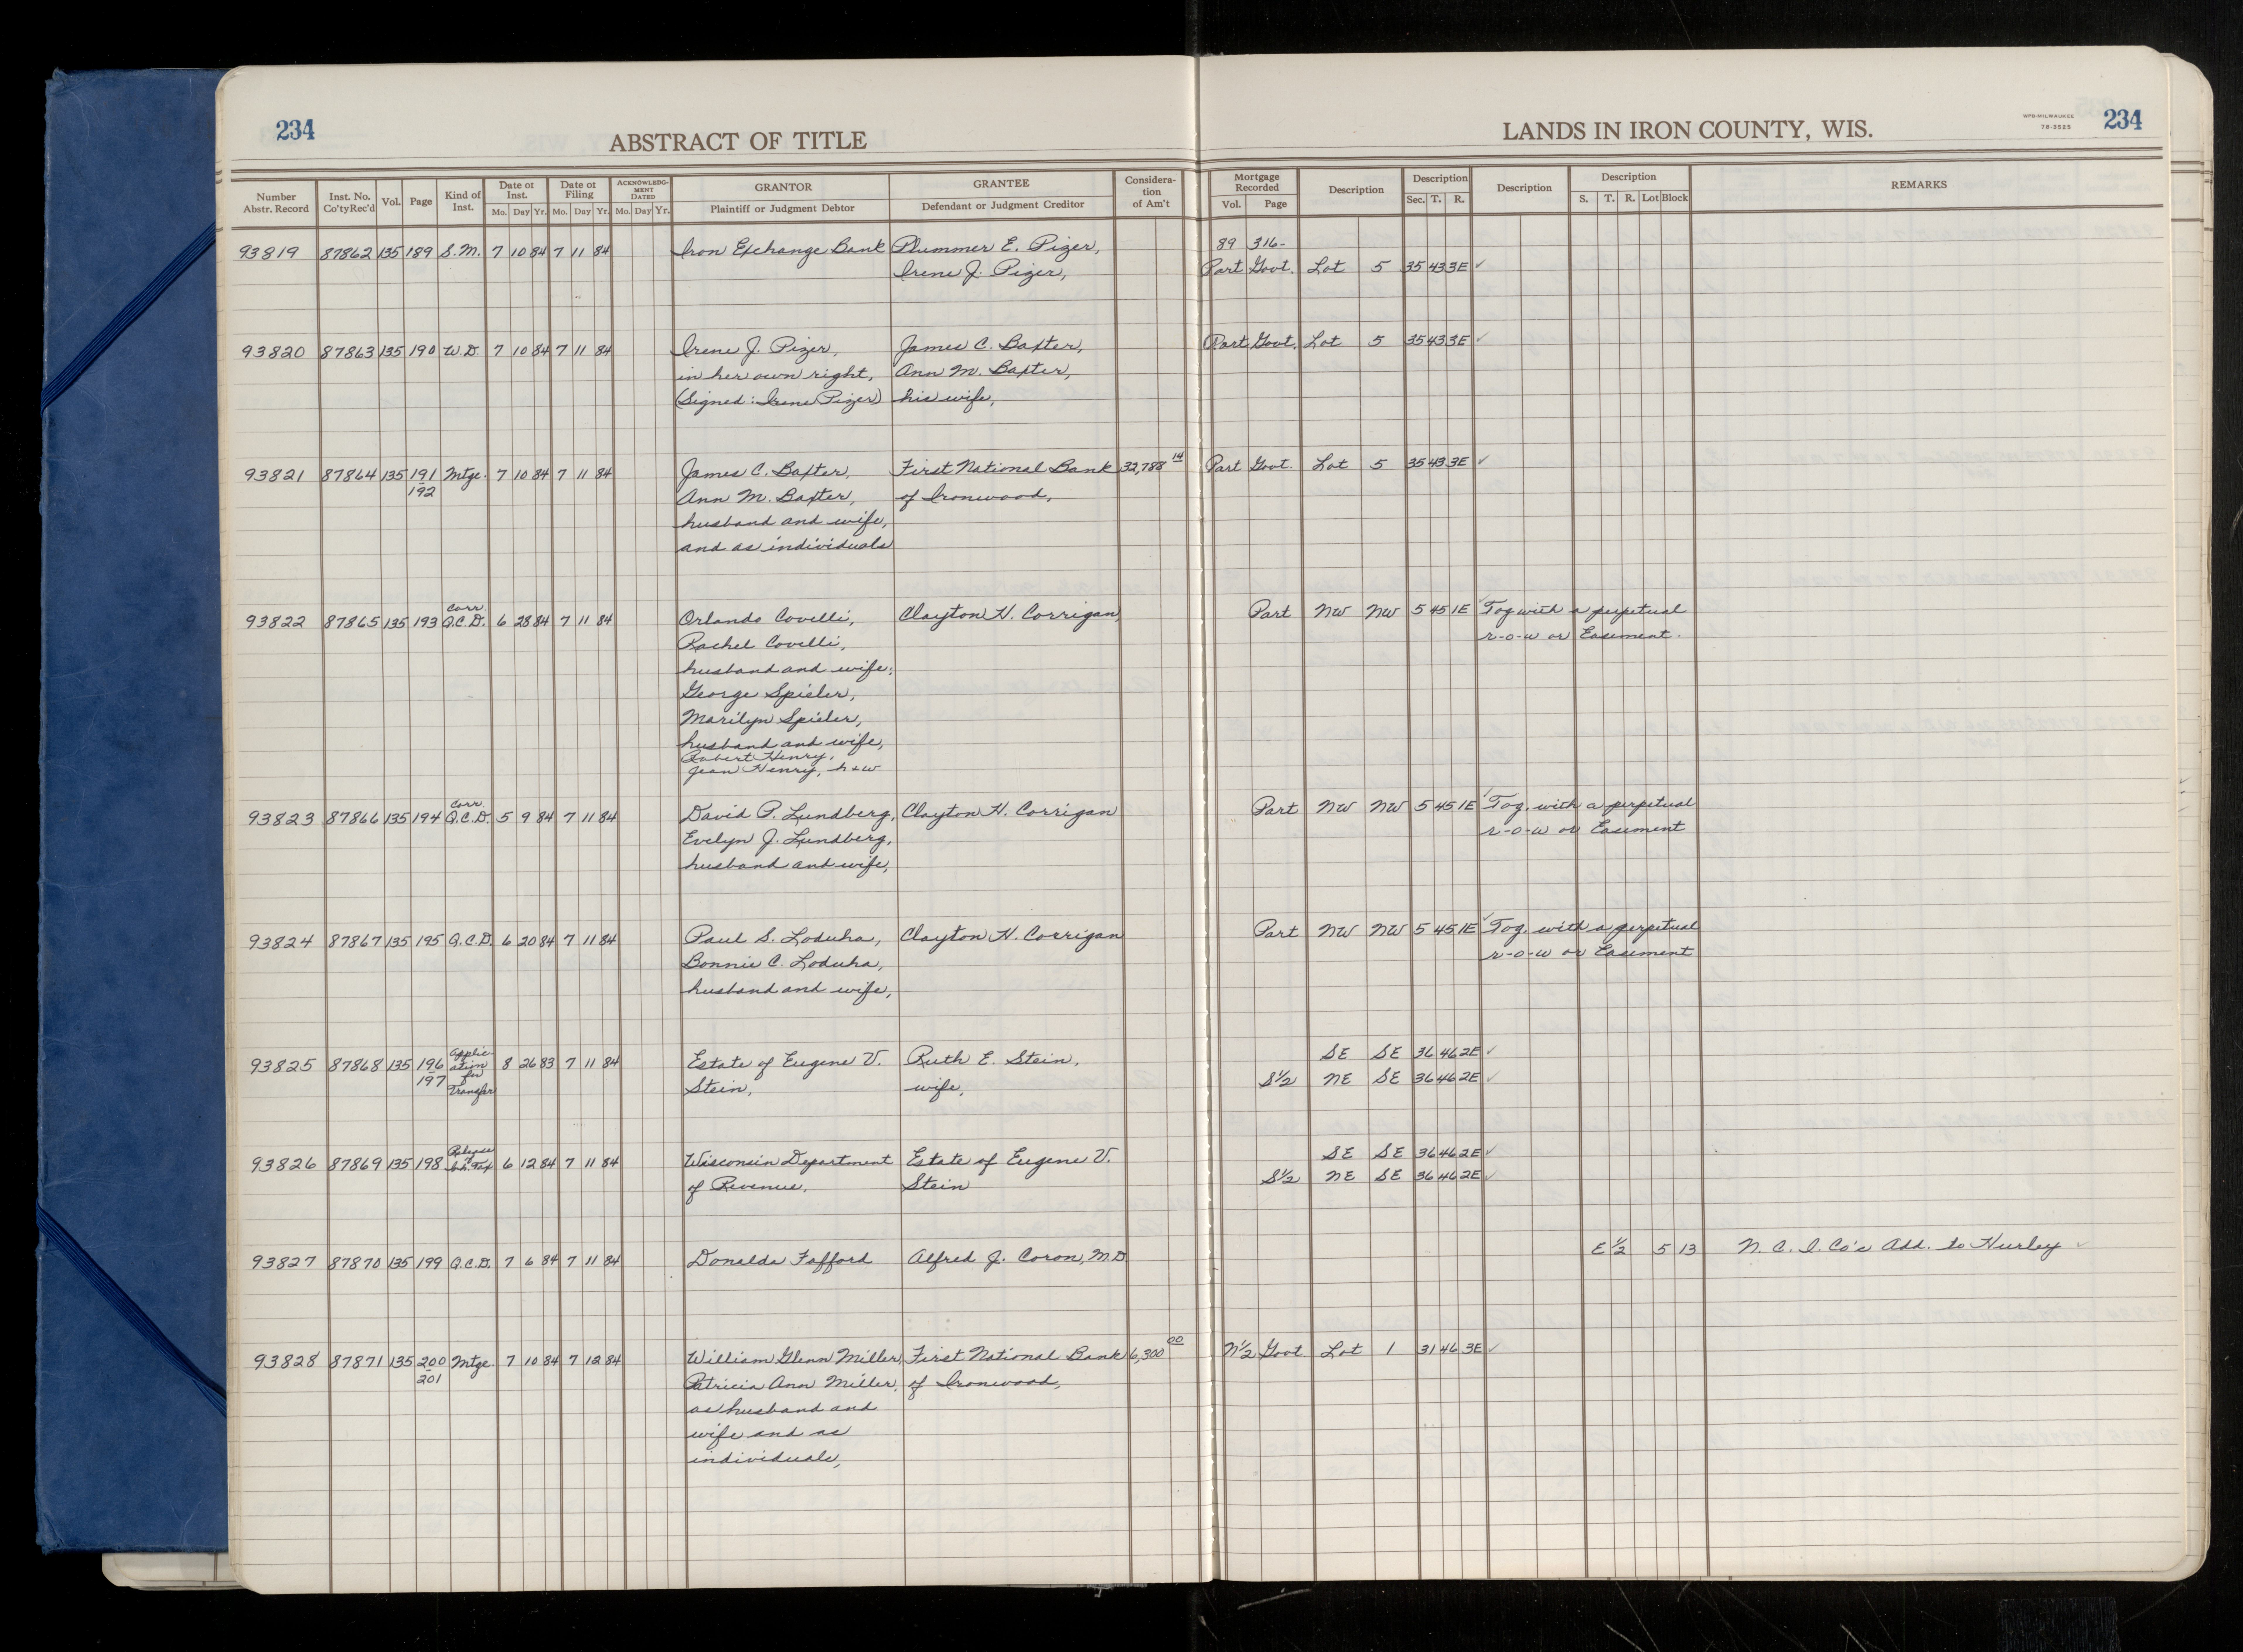 234
ABSTRACT OF TITLE
LANDS IN IRON COUNTY, WIS.
WPB-MILWAUKEE
78-3525
234
Number Abstr. Record | Inst. No. Co'ty Rec'd | Vol. | Page | Kind of Inst. | Date of Inst. Mo. Day Yr. | Date of Filing Mo. Day Yr. | ACKNOWLEDGMENT DATED Mo. Day Yr. | GRANTOR Plaintiff or Judgment Debtor | GRANTEE Defendant or Judgment Creditor | Consideration of Am't | Mortgage Recorded Vol. Page | Description | Description Sec. T. R. | Description | Description S. T. R. Lot Block | REMARKS
93819 87862 135 189 S.M. 7 10 84 7 11 84 Iron Exchange Bank Plummer E. Pizer, 89 316-
Irene J. Pizer, Part Govt. Lot 5 35 43 3E ✓
93820 87863 135 190 W.D. 7 10 84 7 11 84 Irene J. Pizer, James C. Baxter, Part Govt. Lot 5 35 43 3E ✓
in her own right, Ann M. Baxter,
(Signed: Irene Pizer) his wife,
93821 87864 135 191 Mtge. 7 10 84 7 11 84 James C. Baxter, First National Bank 32,788 14 Part Govt. Lot 5 35 43 3E ✓
192 Ann M. Baxter, of Ironwood,
husband and wife,
and as individuals
93822 87865 135 193 Corr. Q.C.D. 6 28 84 7 11 84 Orlando Covelli, Clayton H. Corrigan, Part NW NW 5 45 1E ✓ Tog with a perpetual
Rachel Covelli, r-o-w or Easement.
husband and wife;
George Spieler,
Marilyn Spieler,
husband and wife,
Robert Henry,
Jean Henry, h+w
93823 87866 135 194 Corr. Q.C.D. 5 9 84 7 11 84 David P. Lundberg, Clayton H. Corrigan Part NW NW 5 45 1E ✓ Tog. with a perpetual
Evelyn J. Lundberg, r-o-w or Easement
husband and wife,
93824 87867 135 195 Q.C.D. 6 20 84 7 11 84 Paul S. Loduha, Clayton H. Corrigan Part NW NW 5 45 1E ✓ Tog. with a perpetual
Bonnie C. Loduha, r-o-w or Easement
husband and wife,
93825 87868 135 196 Application for Transfer 8 26 83 7 11 84 Estate of Eugene V. Ruth E. Stein, SE SE 36 46 2E ✓
197 Stein, wife, S½ NE SE 36 46 2E ✓
93826 87869 135 198 Release Inh. Tax 6 12 84 7 11 84 Wisconsin Department Estate of Eugene V. SE SE 36 46 2E ✓
of Revenue, Stein S½ NE SE 36 46 2E ✓
93827 87870 135 199 Q.C.D. 7 6 84 7 11 84 Donalda Fafford Alfred J. Coron, M.D. E½ 5 13 N. C. I. Co's Add. to Hurley ✓
93828 87871 135 200 Mtge. 7 10 84 7 12 84 William Glenn Miller, First National Bank 6,300 00 N½ Govt Lot 1 31 46 3E ✓
201 Patricia Ann Miller, of Ironwood,
as husband and
wife and as
individuals,